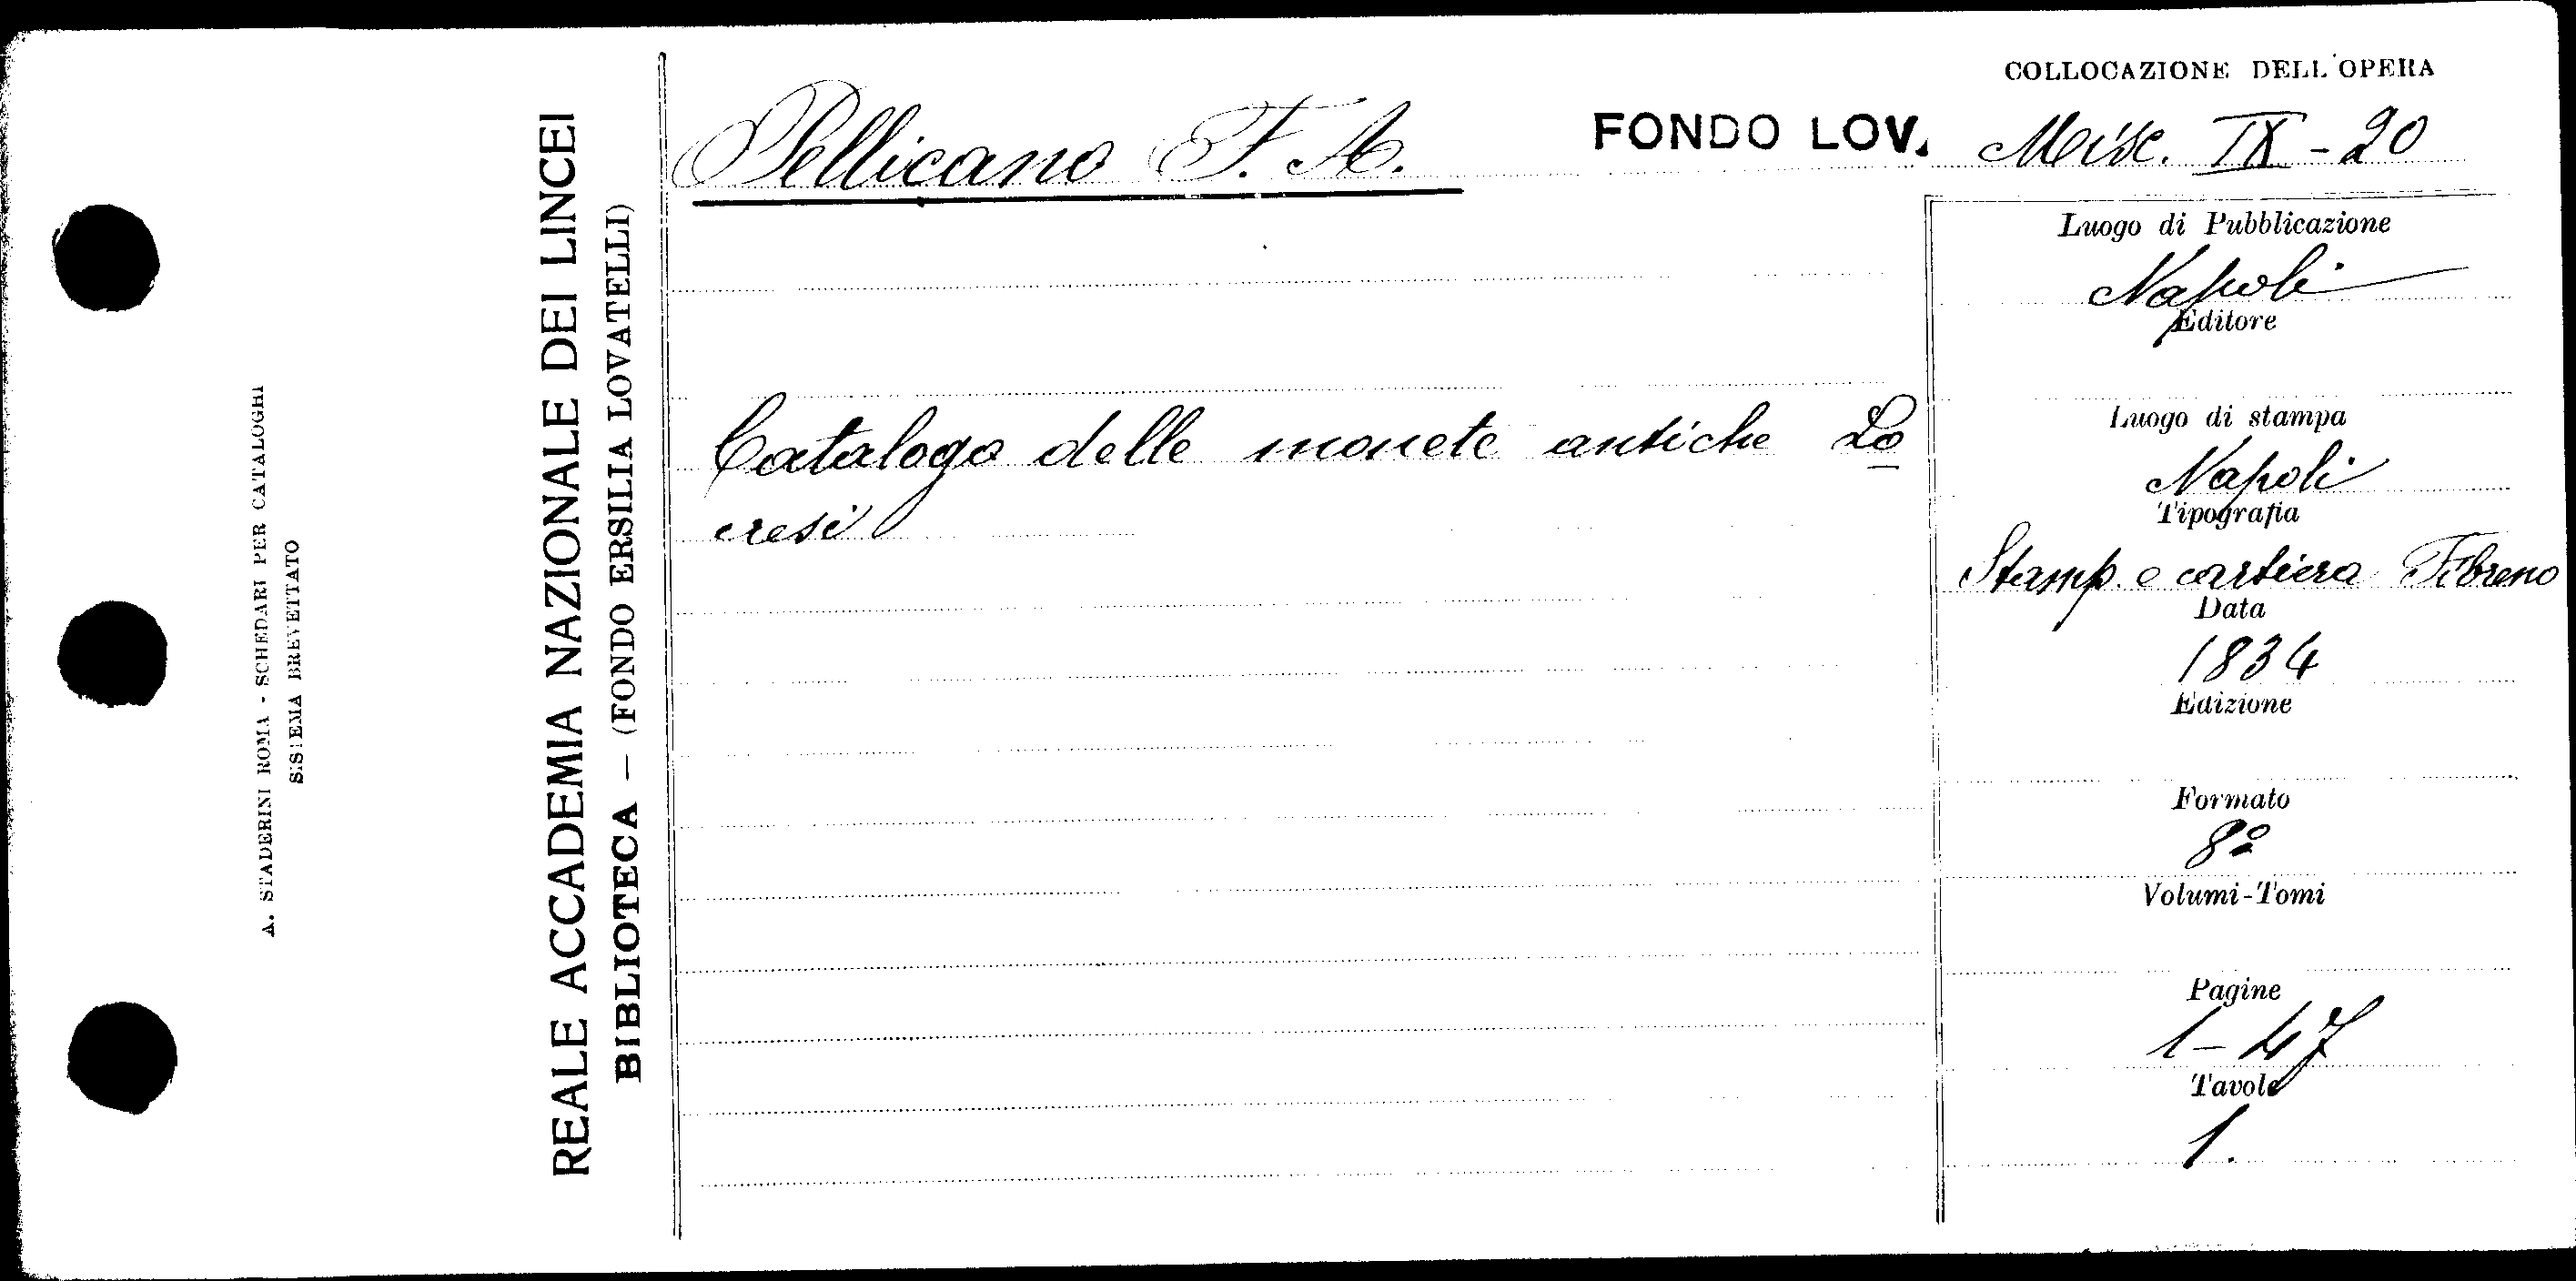 A. STADERINI ROMA - SCHEDARI PER CATALOGHI
SISTEMA BREVETTATO
REALE ACCADEMIA NAZIONALE DEI LINCEI
BIBLIOTECA — (FONDO ERSILIA LOVATELLI)
COLLOCAZIONE DELL'OPERA
Pellicano F. A.
FONDO LOV. Misc. IX - 20
Catalogo delle monete antiche Lo
cresi
Luogo di Pubblicazione
Napoli
Editore
Luogo di stampa
Napoli
Tipografia
Stamp. e cartiera Fibreno
Data
1834
Edizione
Formato
8º
Volumi-Tomi
Pagine
1-47
Tavole
1.